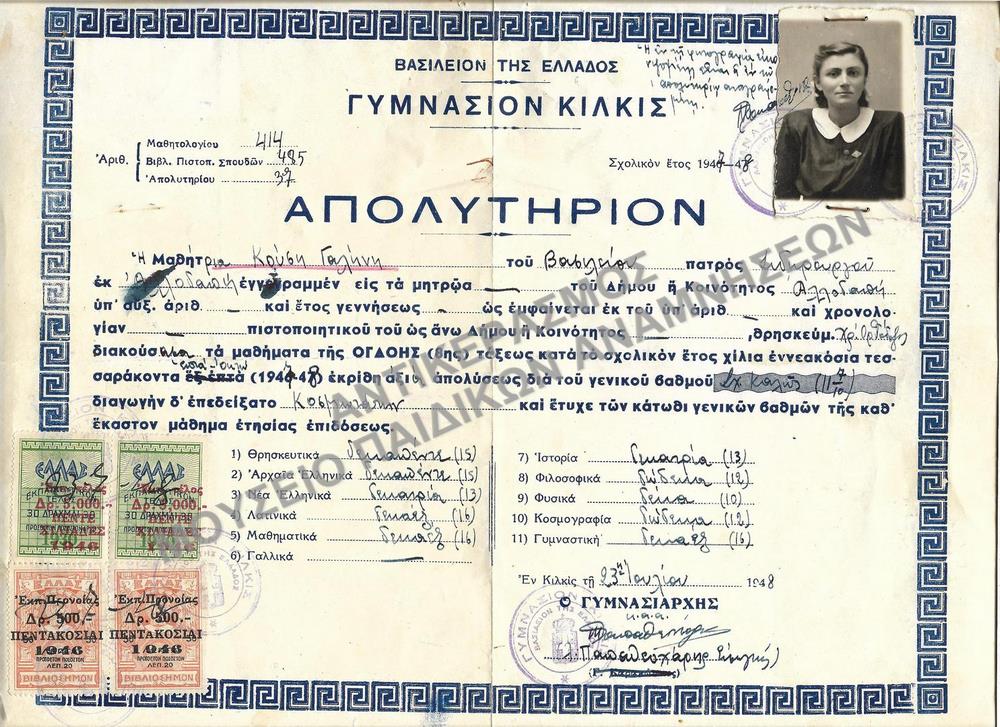 ΒΑΣΙΛΕΙΟΝ ΤΗΣ ΕΛΛΑΔΟΣ
ΓΥΜΝΑΣΙΟΝ ΚΙΛΚΙΣ
Ἡ ἐν τῇ φωτογραφίᾳ
Ἀριθ.
Μαθητολογίου 414
Βιβλ. Πιστοπ. Σπουδῶν 485
Ἀπολυτηρίου 37
Σχολικὸν ἔτος 1947-48
ΑΠΟΛΥΤΗΡΙΟΝ
Ἡ Μαθήτρια Κούση Γαλήνη τοῦ Βασιλείου πατρὸς Σιδηρουργοῦ
ἐκ Ἀλλοδαπὴ ἐγγεγραμμέν εἰς τὰ μητρῷα — τοῦ Δήμου ἢ Κοινότητος Ἀλλοδαπὴ
ὑπ' αὐξ. ἀριθ. — καὶ ἔτος γεννήσεως — ὡς ἐμφαίνεται ἐκ τοῦ ὑπ' ἀριθ. — καὶ χρονολο-
γίαν — πιστοποιητικοῦ τοῦ ὡς ἄνω Δήμου ἢ Κοινότητος , θρησκεύμ.
διακούσασα τὰ μαθήματα τῆς ΟΓΔΟΗΣ (8ης) τάξεως κατὰ τὸ σχολικὸν ἔτος χίλια ἐννεακόσια τεσ-
σαράκοντα ἓξ ἑπτὰ (1947-48) ἐκρίθη ἀξία ἀπολύσεως διὰ τοῦ γενικοῦ βαθμοῦ Λχ Καλῶς (11 7/10)
διαγωγὴν δ' ἐπεδείξατο Κοσμιωτάτην καὶ ἔτυχε τῶν κάτωθι γενικῶν βαθμῶν τῆς καθ'
ἕκαστον μάθημα ἐτησίας ἐπιδόσεως.
1) Θρησκευτικὰ δεκαπέντε (15)
2) Ἀρχαῖα Ἑλληνικὰ δεκαπέντε (15)
3) Νέα Ἑλληνικὰ δεκατρία (13)
4) Λατινικὰ δεκαέξ (16)
5) Μαθηματικὰ δεκαέξ (16)
6) Γαλλικὰ —
7) Ἱστορία δεκατρία (13)
8) Φιλοσοφικὰ δώδεκα (12)
9) Φυσικὰ δέκα (10)
10) Κοσμογραφία δώδεκα (12)
11) Γυμναστικὴ δεκαέξ (16)
Ἐν Κιλκὶς τῇ 23ῃ Ἰουλίου 1948
Ο ΓΥΜΝΑΣΙΑΡΧΗΣ
κ.α.α.
ΕΛΛΑΣ
ΕΚΠΑΙΔΕΥΤΙΚΟΝ
ΤΕΛΟΣ
30 ΔΡΑΧΜΑΙ 30
Δρ. 5.000.-
ΠΕΝΤΕ
ΧΙΛΙΑΔΕΣ
1946
ΕΛΛΑΣ
30 ΔΡΑΧΜΑΙ 30
Δρ. 5.000.-
ΠΕΝΤΕ
ΧΙΛΙΑΔΕΣ
1946
ΕΛΛΑΣ
Ἐκπ. Προνοίας
Δρ. 500,-
ΠΕΝΤΑΚΟΣΙΑΙ
1946
ΛΕΠ. 20
ΒΙΒΛΙΟΣΗΜΟΝ
ΕΛΛΑΣ
Ἐκπ. Προνοίας
Δρ. 500.-
ΠΕΝΤΑΚΟΣΙΑΙ
1946
ΛΕΠ. 20
ΒΙΒΛΙΟΣΗΜΟΝ
ΓΥΜΝΑΣΙΟΝ ΚΙΛΚΙΣ
ΒΑΣΙΛΕΙΟΝ ΤΗΣ ΕΛΛΑΔΟΣ
ΑΝΤΙΚΕΡΑΣΜΟΣ
ΜΟΥΣΕΙΟ ΠΑΙΔΙΚΩΝ ΑΝΑΜΝΗΣΕΩΝ